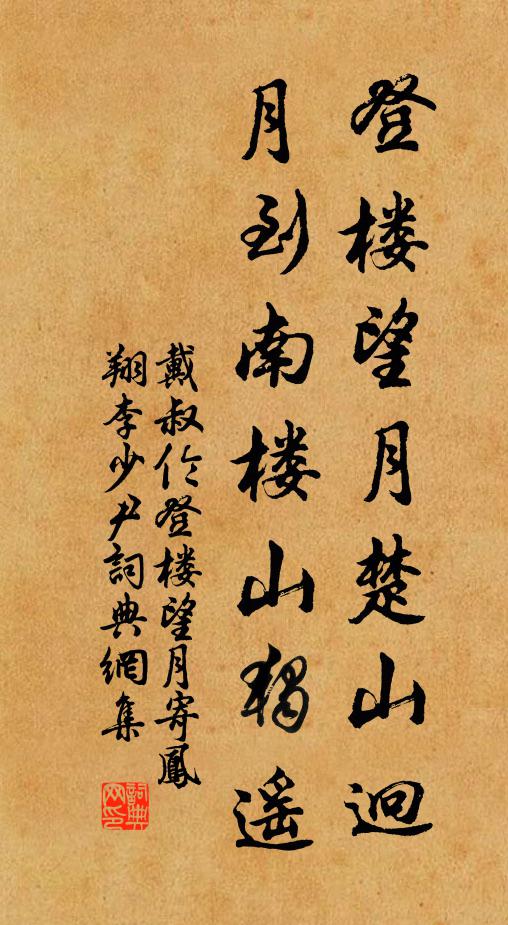 登楼望月楚山迥
月到南楼山独遥
戴叔伦登楼望月寄鳳
翔李少尹詞典網集
詞典
网印